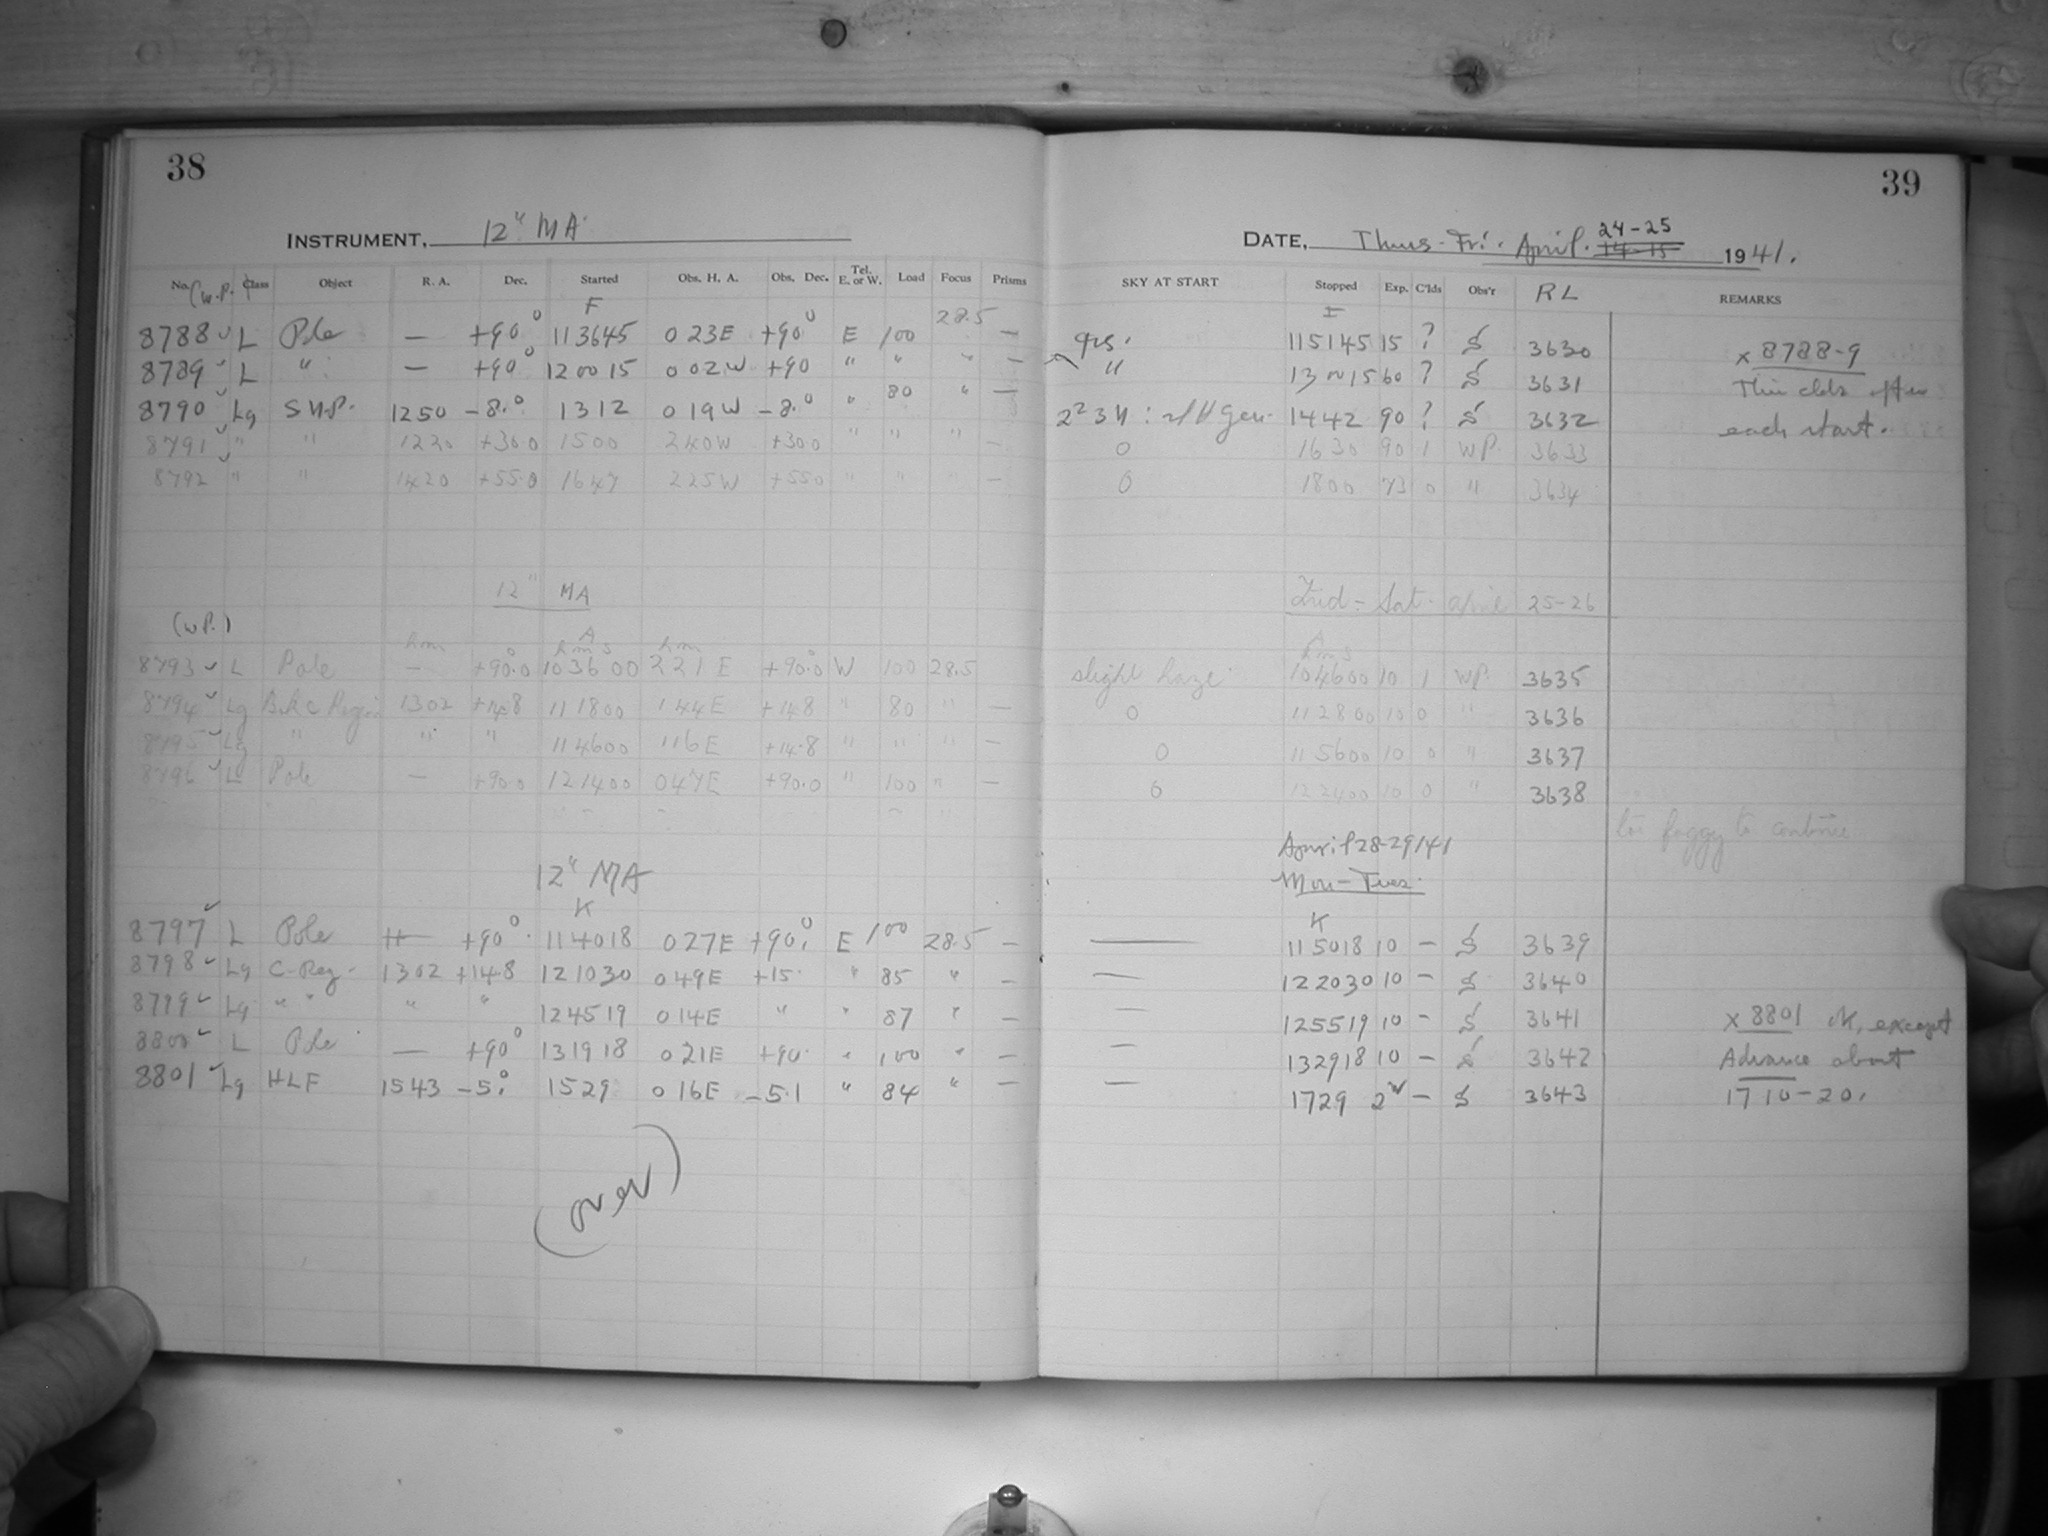 38
39
INSTRUMENT, 12" MA
DATE, Thurs-Fri. April. 24-25 14-15 1941.
No. (W.P.) Class Object R. A. Dec. Started Obs. H. A. Obs. Dec. Tel. E. or W. Load Focus Prisms SKY AT START Stopped Exp. C'lds Obs'r RL REMARKS
F I
8788 L Pole — +90° 113645 023E +90° E 100 28.5 — 115145 15 ? 3630 x 8788-9
8789 L " — +90° 120015 002W +90 " " " — " 130015 60 ? 3631 Thin clds after
8790 Lg S.H.P. 1250 -8.° 1312 019W -8.° " 80 " — 1442 90 ? 3632 each start.
8791 " " 1220 +30.0 1500 240W +30.0 " " " — 0 1630 90 1 WP. 3633
8792 " " 1420 +55.0 1647 225W +55.0 " " — 0 1800 73 0 " 3634
12" MA Frid - Sat. April 25-26
(W.P.)
h m ° A h m s h m ° A h m s
8793 L Pole — +90.0 103600 221E +90.0 W 100 28.5 slight haze 104600 10 1 WP. 3635
8794 Lg 1302 +14.8 111800 144E +14.8 " 80 " — 0 112800 10 0 " 3636
8795 Lg " " " 114600 116E +14.8 " " " — 0 115600 10 0 " 3637
8796 L Pole — +90.0 121400 047E +90.0 " 100 " — 0 122400 10 0 " 3638
too foggy to continue
April 28-29/41
12" MA Mon-Tues.
K K
8797 L Pole +90°. 114018 027E +90.° E 100 28.5 — — 115018 10 — 3639
8798 Lg C-Reg. 1302 +14.8 121030 049E +15. " 85 " — — 122030 10 — 3640
8799 Lg " " " " 124519 014E " " 87 " — — 125519 10 — 3641 x 8801 ok, except
8800 L Pole — +90° 131918 021E +90. " 100 " — — 132918 10 — 3642 Advance about
8801 Lg HLF 1543 -5.° 1529 016E -5.1 " 84 " — — 1729 2 — 3643 1710-20.
(over)